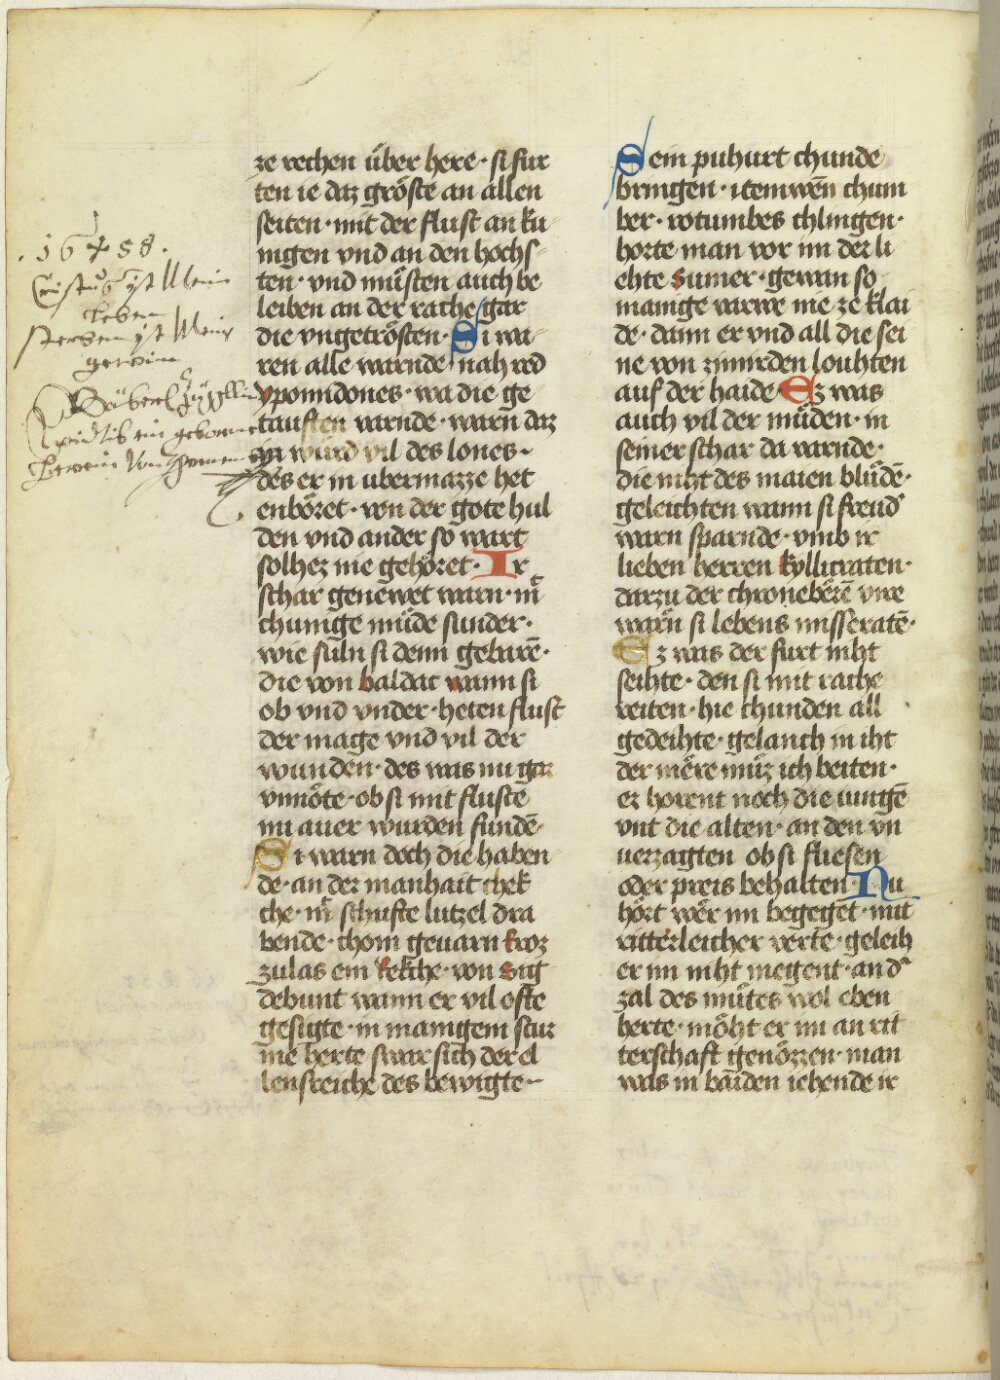 ze rechen über here · si fur
ten ie daz gröste an allen
seiten · mit der flust an ku
nigen vnd an den hochs
ten · vnd müsten auch be
leiben an der rache gar
die vngetrösten · Si wa
ren alle warnde nah rod
yponidones · wa die ge
tauften warnde · warn daz
in würd vil des lones ·
des er in ubermazze het
enböret · von der gote hul
den vnd ander so wart
solhez nie gehöret · Ir
schar genewet warn · mͣ
chunige müde sunder ·
wie suln si denn gebarē ·
die von baldac wann si
ob vnd vnder · heten flust
der mage vnd vil der
wunden · des was nu gar
vnnöte · ob si mit flustē
nu auer wurden fundē ·
Si warn doch die haben
de · an der manhait chek
che · schufte lutzel dra
bende · chom geuarn kroz
zulas ein kekche · von sig
debunt wann er vil ofte
gesigte · in manigem stur
me herte swar sich der el
lensreiche des bewigte ·
Sein puhurt chunde
bringen · item wēn chum
ber · rotumbes chlingen ·
horte man vor im der li
ehte sumer · gewan so
manige varwe nie ze klai
de · dann er vnd all die sei
ne von zimirden louhten
auf der haide Ez was
auch vil der müden · in
seiner schar da varnde ·
die niht des maien blüdē ·
geleichten wann si freud
warn sparnde · vmb ir
lieben herren kyllicraten ·
darzu der chronebërē vive
warn si lebens misseratē ·
Ez was der furt niht
seihte · den si mit rache
reiten · hie chunden all
gedeihte · gelanch in iht
der mëre müz ich beiten ·
ez horent noch die iungē
vnt die alten · an den vn
uerzagten ob si fliesen
oder preis behalten · Nu
hört wër im begeget · mit
ritterleicher verte · geleih
er im niht megent · an d
zal des mütes wol eben
herte · möht er im an rit
terschaft genözzen · man
was in baiden iehende ir
· 16 58 ·
Cristus ist Mein
Leben
Sterben ist Mein
gewin